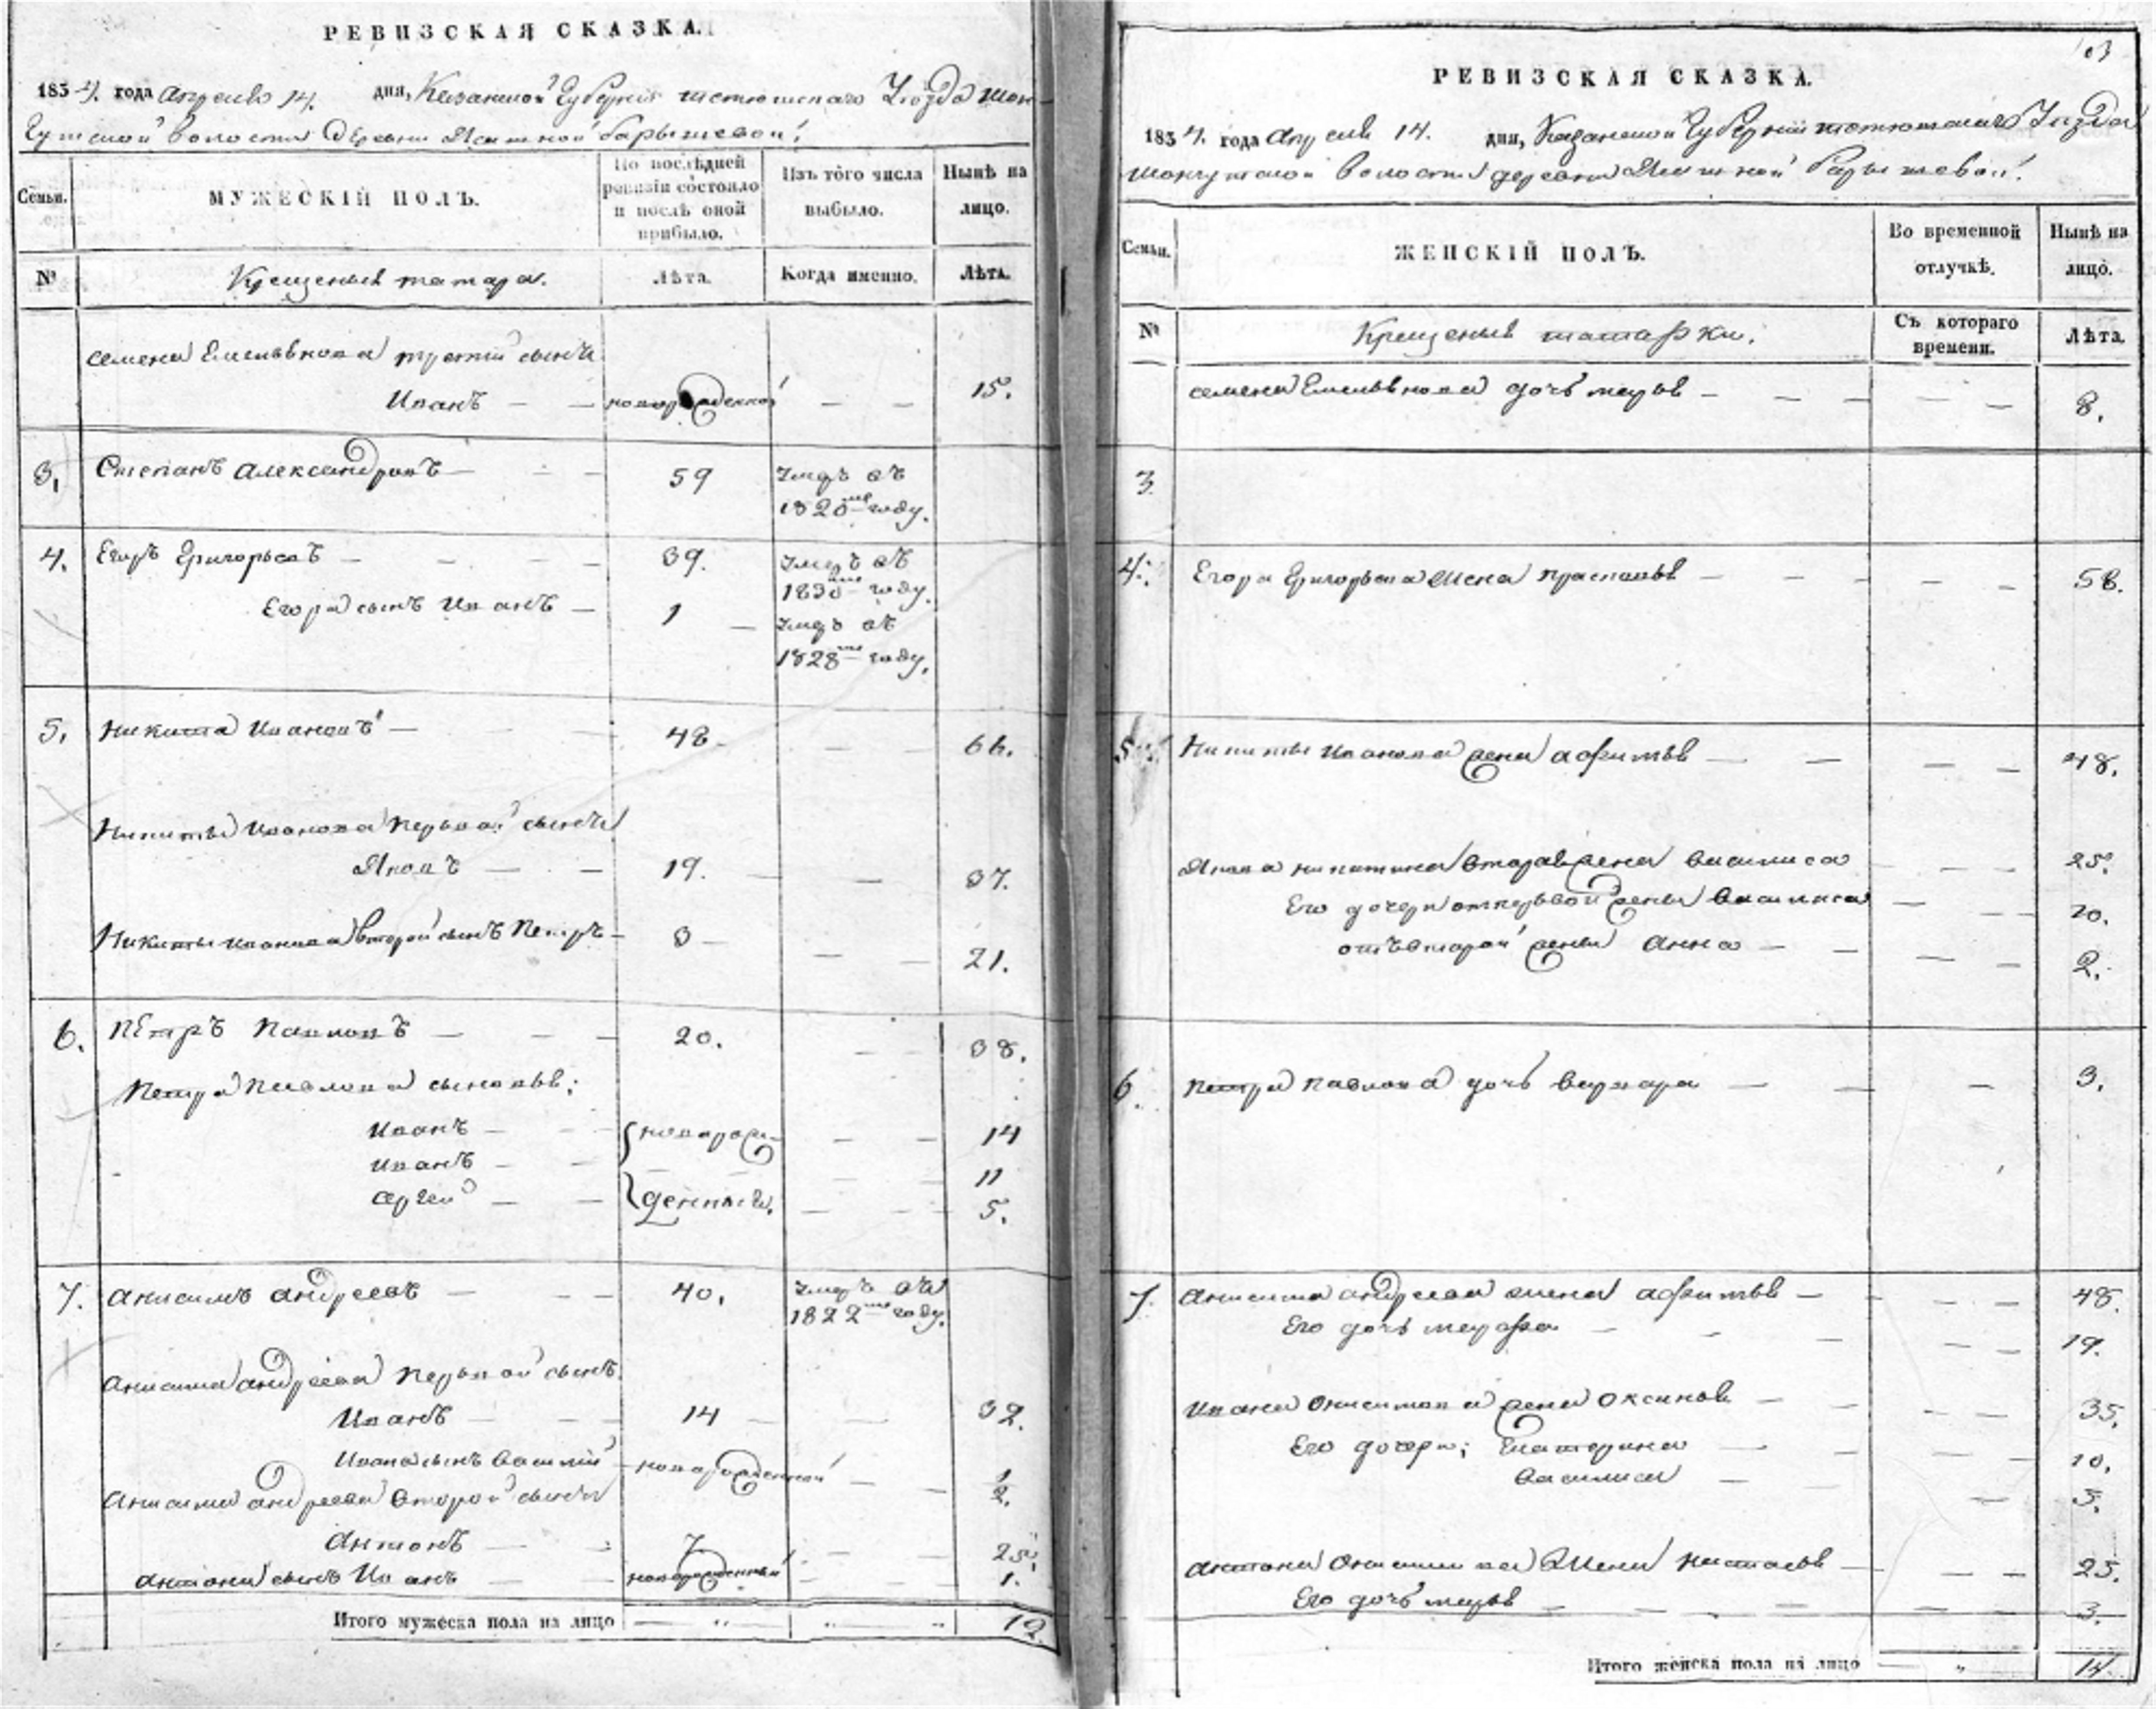 РЕВИЗСКАЯ СКАЗКА.
1834. года Апреля 14. дня, Казанской Губернии тетюшскаго Уезда шон-
гутской волости Деревни Ясашной барышевой.
Семьи.
МУЖЕСКІЙ ПОЛЪ.
По послѣдней ревизіи состояло и послѣ оной прибыло.
Изъ того числа выбыло.
Нынѣ на лицо.
№
Крещеныя татара.
Лѣта.
Когда именно.
Лѣта.
семена Емельянова третій сынъ
Иванъ — — новорожденной — — 15.
3. Степанъ Александровъ — — — 59 Умеръ въ
1820мъ году.
4. Егоръ Григорьевъ — — — 39. Умеръ въ
1830мъ году.
Егора сынъ Иванъ — 1 — Умеръ въ
1828мъ году.
5. Никита Ивановъ — — — 48 — — 66.
Никиты Иванова первой сынъ
Яковъ — — 19. — — 37.
Никиты Иванова второй сынъ Петръ — 3 — — — 21.
6. Петръ Павловъ — — — 20. — — 38.
Петра Павлова сыновья:
Иванъ — — новорож- — — 14
Иванъ — — — — 11
Сергей — — денныя. — — 5.
7. Анисимъ Андреевъ — — — 40. Умеръ въ
1822мъ году.
Анисима Андреева первой сынъ
Иванъ — — 14 — — 32.
Ивана сынъ Василий — новорожденной — — 1/2.
Анисима Андреева второй сынъ
Антонъ — — 7. — — 25.
Антона сынъ Иванъ — — новорожденный — — 1.
Итого мужеска пола на лицо — " " " 12.
103
РЕВИЗСКАЯ СКАЗКА.
1834. года Апреля 14. дня, Казанской Губернии тетюшскаго Уезда
шонгутской волости деревни Ясашной барышевой.
Семьи.
ЖЕНСКІЙ ПОЛЪ.
Во временной отлучкѣ.
Нынѣ на лицо.
№
Крещеныя татарки.
Съ котораго времени.
Лѣта.
семена Емельянова дочь марья — — — — — 8.
3
4. Егора Григорьева жена прасковья — — — — — 58.
5. Никиты Иванова жена афимья — — — — 48.
Якова никитина вторая жена василиса — — — 25.
Его дочери от первой жены василиса — — — 10.
отъ второй жены анна — — — — 2.
6. Петра Павлова дочь варвара — — — 9.
7. Анисима андреева жена афимья — — — — 48.
Его дочь марфа — — — — — 19.
Ивана Онисимова жена оксинья — — — — 35.
Его дочери: Екатерина — — — — 10.
василиса — — — 5.
Антона Онисимова Жена настасья — — — 25.
Его дочь марья — — — — — 3.
Итого женска пола на лицо — " — 14.